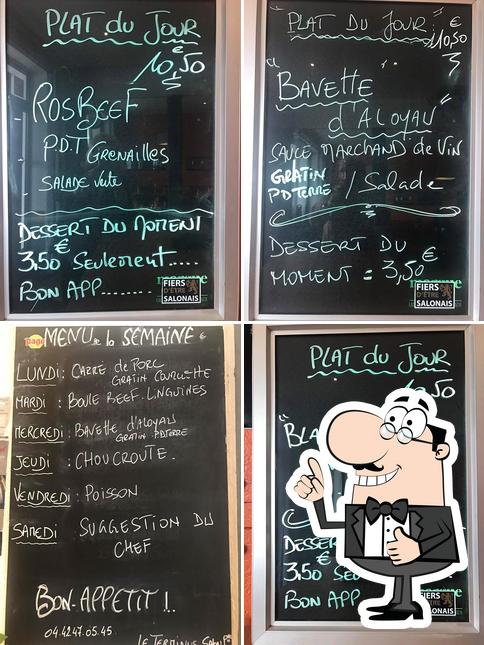 PLAT du JOUR
€
10,50
ROSBEEF
P.D.T GRENAILLES
SALADE Verte
DESSERT DU MOMENT
€
3,50 Seulement.....
BON APP........
FIERS
D'ÊTRE
SALONAIS
PLAT DU JOUR
€
10,50
"BAVETTE
d'ALOYAU"
SAUCE MARCHAND de VIN
GRATIN
PDTERRE / Salade
DESSERT DU
MOMENT = 3,50€
FIERS
D'ÊTRE
SALONAIS
MENU de la SEMAINE
LUNDI : CARRÉ de PORC
GRATIN COURGETTE
MARDI : BOULE BEEF. LINGUINES
MERCREDI : BAVETTE d'ALOYAU
GRATIN PDTERRE
JEUDI : CHOUCROUTE.
VENDREDI : POISSON
SAMEDI SUGGESTION DU
CHEF
BON APPETIT !..
04.42.47.05.45
LE TERMINUS
PLAT du JOUR
50
"BLA
DESSER
€
3,50 SEU
BON APP
FIERS
D'ÊTRE
SALONAIS